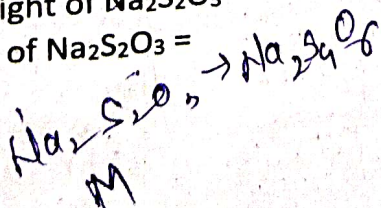 ight of Na2S2O3
of Na2S2O3 =
Na2S2O3 → Na2S4O6
M